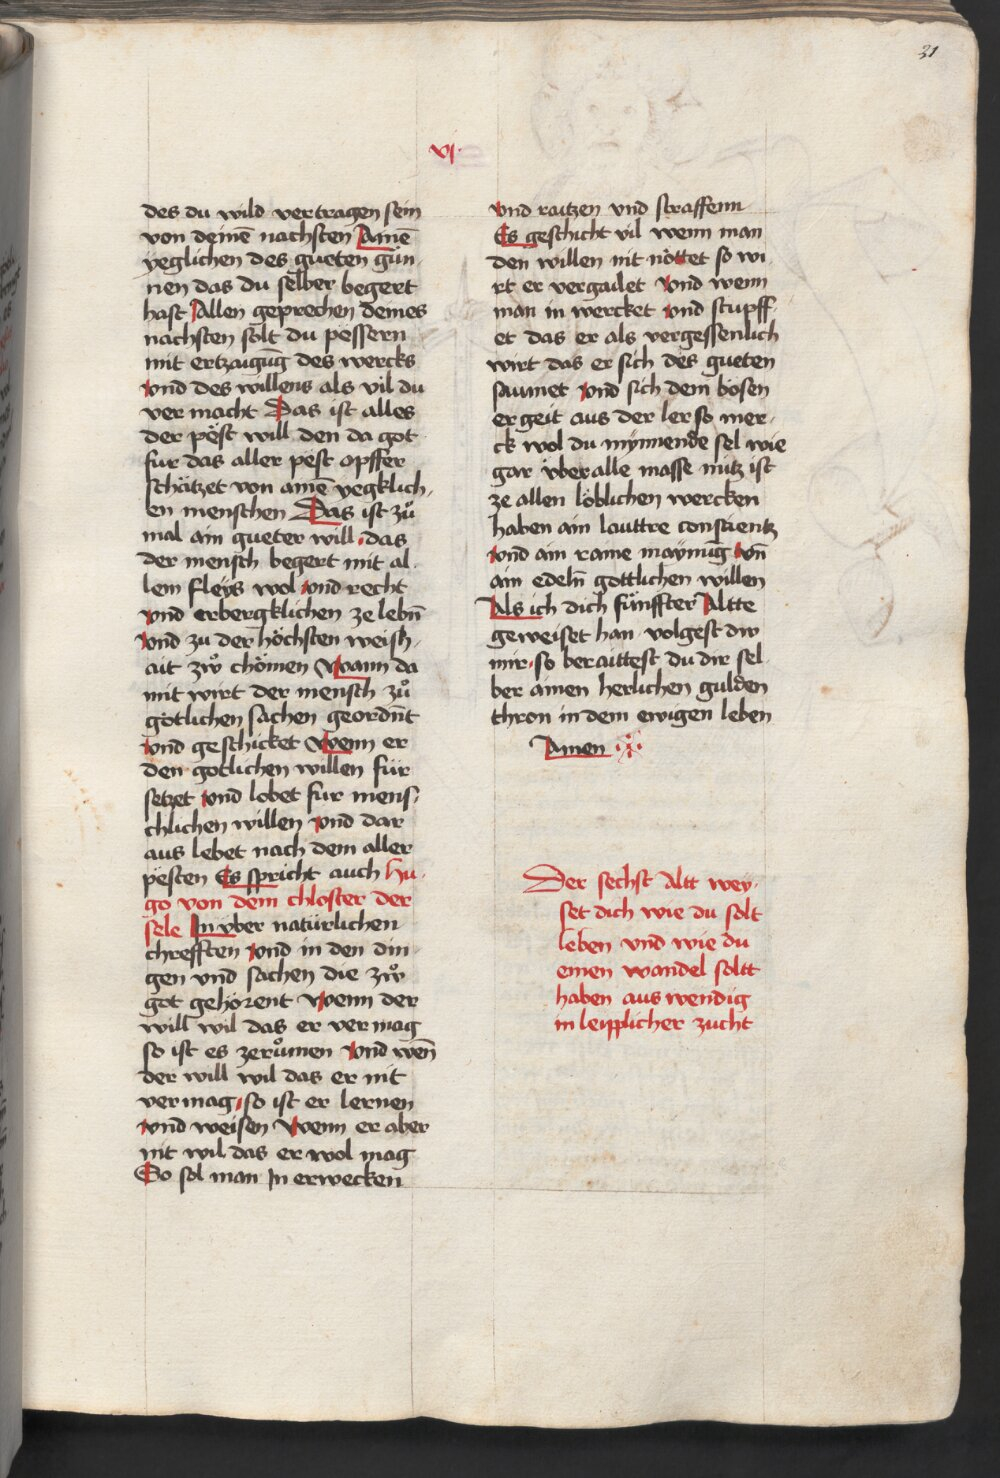 31
vj
des du wild vertragen sein
von deinē nachsten Ainē
yeglichen des gueten gün¬
nen das du selber begert
hast Allen geprechen deines
nachsten solt du pessern
mit ertzaigūg des wercks
vnd des willens als vil du
ver macht Das ist alles
der pëst will den da got
fur das aller pest opffer
schätzet von ainē yegklich¬
en menschen Das ist zů
mal ain gueter will das
der mensch begert mit al¬
lem fleÿs wol vnd recht
vnd erbergklichen ze lebn̄
vnd zu der höchsten weish¬
ait zẘ chömen Wann da
mit wirt der mensch zů
götlichen sachen geordn̄t
vnd geschicket Wenn er
den gotlichen willen für
setzet vnd lobet fur mens¬
chlichen willen vnd dar
aus lebet nach dem aller
pësten Es spricht auch hu¬
go von dem chloster der
sele In über natürlichen
chrefften vnd in den din¬
gen vnd sachen die zẘ
got gehörent Wenn der
will wil das er ver mag
so ist es zerůmen Vnd wen̄
der will wil das er nit
vermag so ist er lernen
vnd weisen Wenn er aber
nit wil das er wol mag
So sol man In erwecken
vnd raitzen vnd straffenn
Es geschicht vil wenn man
den willen nit nöttet so wi¬
rt er vergailet Vnd wenn
man in wercket vnd stupff¬
et das er als vergessenlich
wirt das er sich des gueten
saumet vnd sich dem bösen
ergeit aus der ler so mer¬
ck wol du mynnende sel wie
gar über alle masse nutz ist
ze allen löblichen wercken
haben ain lauttre conscientz
vnd ain raine maynūg vn̄
ain edeln̄ gottlichen willen
Als ich dich fünffter Altte
geweiset han volgest dw
mir so beraittest du dir sel
ber ainen herlichen gulden
thron in dem ewigen leben
Amen
Der sechst Altt wey¬
set dich wie du solt
leben vnd wie du
einen wandel soltt
haben auswendig
in leipplicher zucht